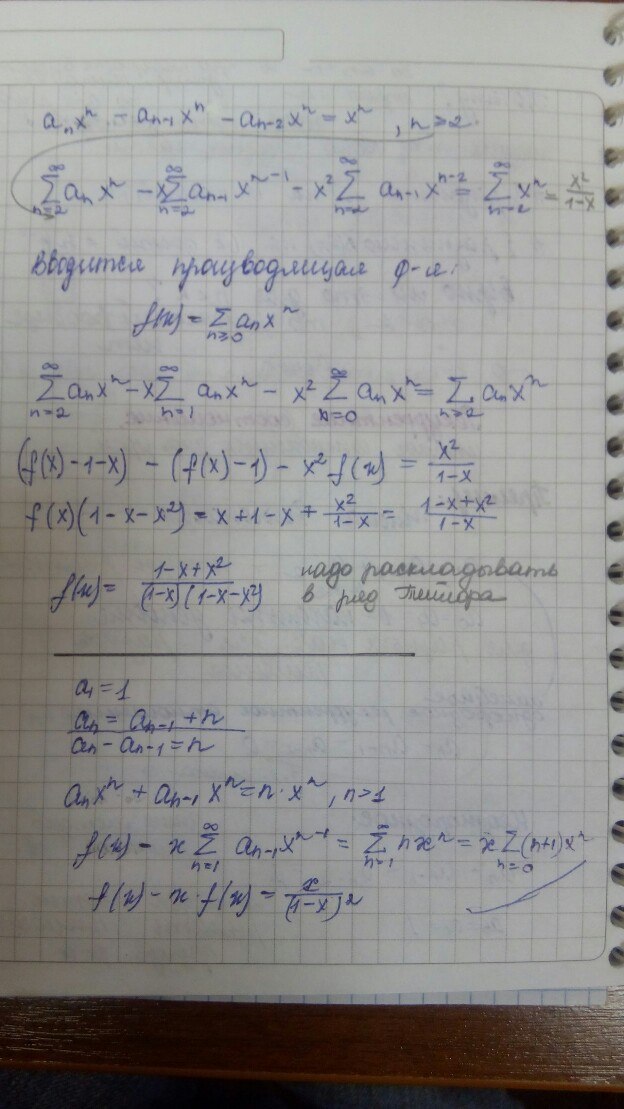 aₙxⁿ - aₙ₋₁xⁿ - aₙ₋₂xⁿ = xⁿ , n ≥ 2.
∑_{n=2}^{∞} aₙxⁿ - x∑_{n=2}^{∞} aₙ₋₁xⁿ⁻¹ - x²∑_{n=2}^{∞} aₙ₋₁xⁿ⁻² = ∑_{n=2}^{∞} xⁿ = x²/(1-x)
Вводится производящая ф-я:
f(x) = ∑_{n≥0} aₙxⁿ
∑_{n=2}^{∞} aₙxⁿ - x∑_{n=1}^{∞} aₙxⁿ - x²∑_{n=0}^{∞} aₙxⁿ = ∑_{n≥2} aₙxⁿ
(f(x)-1-x) - (f(x)-1) - x²f(x) = x²/(1-x)
f(x)(1-x-x²) = x+1-x + x²/(1-x) = (1-x+x²)/(1-x)
f(x) = (1-x+x²)/((1-x)(1-x-x²)) надо раскладывать
в ряд Тейлора
a₁ = 1
aₙ = aₙ₋₁ + n
aₙ - aₙ₋₁ = n
aₙxⁿ + aₙ₋₁xⁿ = n·xⁿ , n>1
f(x) - x∑_{n=1}^{∞} aₙ₋₁xⁿ⁻¹ = ∑_{n=1}^{∞} nxⁿ = x∑_{n=0}(n+1)xⁿ
f(x) - x·f(x) = x/(1-x)²